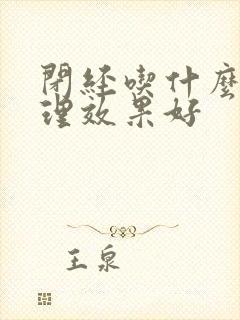 閉經喫什麽
理效果好
王泉